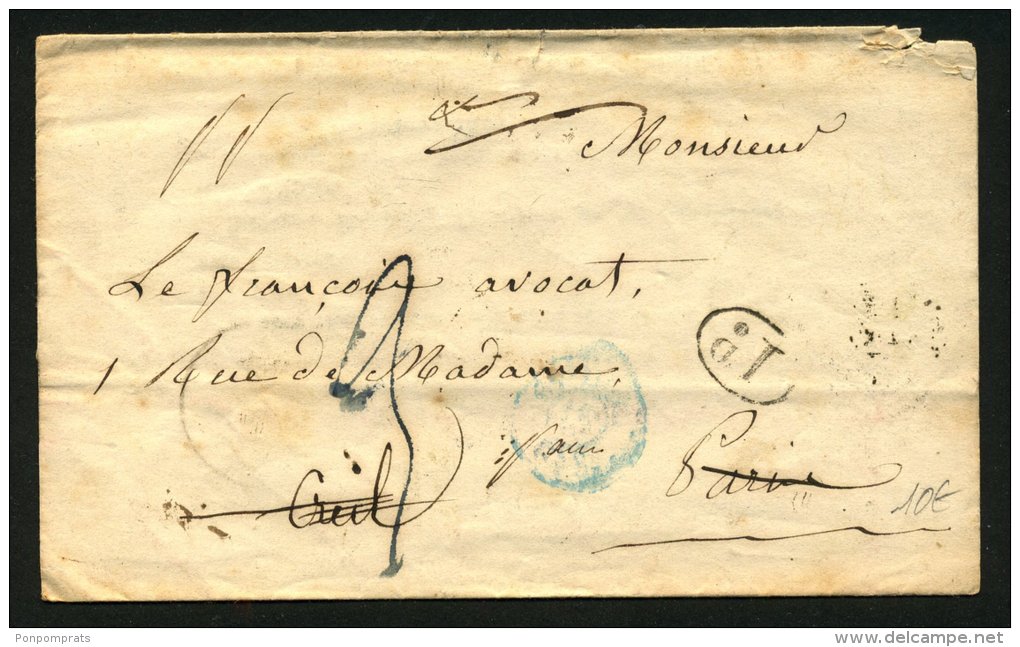 Monsieur
Le françois avocat,
1 Rue de Madame,
Creil
Paris
3
I.D
10€
Ponpomprats
delcampe.net